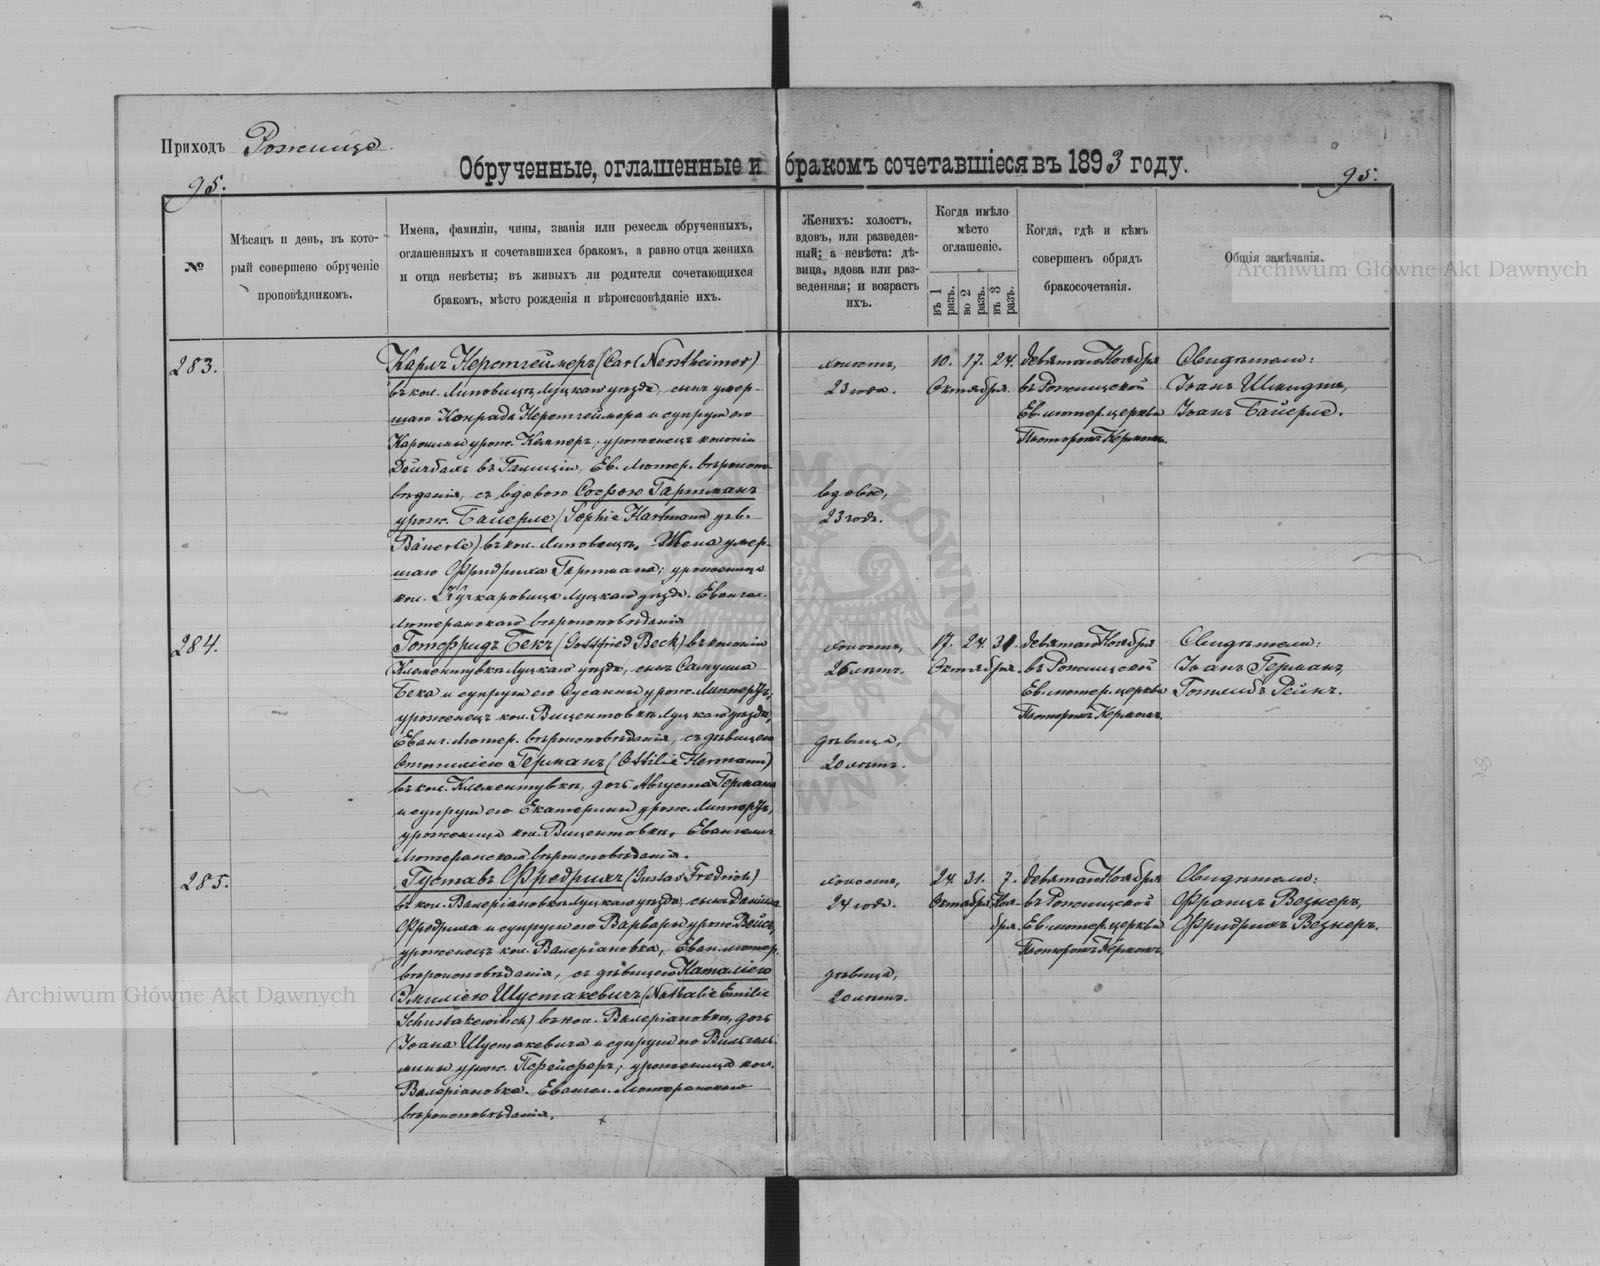 Приходъ Рожище
Обрученные, оглашенные и бракомъ сочетавшіеся въ 1893 году.
95.
95.
№
Мѣсяцъ и день, въ кото-
рый совершено обрученіе
проповѣдникомъ.
Имена, фамиліи, чины, званія или ремесла обрученныхъ,
оглашенныхъ и сочетавшихся бракомъ, а равно отца жениха
и отца невѣсты; въ живыхъ ли родители сочетающихся
бракомъ, мѣсто рожденія и вѣроисповѣданіе ихъ.
Женихъ: холостъ,
вдовъ, или разведен-
ный; а невѣста: дѣ-
вица, вдова или раз-
веденная; и возрастъ
ихъ.
Когда имѣло
мѣсто
оглашеніе.
въ 1 разъ.
во 2 разъ.
въ 3 разъ.
Когда, гдѣ и кѣмъ
совершенъ обрядъ
бракосочетанія.
Общія замѣчанія.
283.
Карлъ Нерстгеймеръ (Carl Nerstheimer)
въ кол. Липовецъ, Луцкаго уѣзда, сынъ умер-
шаго Конрада Нерстгеймера и супруги его
Каролины урож. ; уроженецъ колоніи
въ Галиціи, Ев. Лютер. вѣроиспо-
вѣданія, съ вдовою Софіею Гартманъ
урож. Байерле (Sophie Hartmann geb.
Bäuerle) въ кол. Липовецъ, Жена умер-
шаго Фридриха Гартмана; уроженица
кол. Луцкаго уѣзда. Евангел.
Лютеранскаго вѣроисповѣданія
холостъ,
23 года.
вдова,
23 года.
10. 17. 24.
Октября.
девятаго Ноября
въ Рожищской
Ев. лютер. церкви
Пасторомъ Керномъ.
Свидѣтели:
Іоанъ Шмидтъ,
Іоанъ Байерле.
284.
Готфридъ Бекъ (Gottfried Beck) въ колоніи
Клементувка Луцкаго уѣзда, сынъ Самуила
Бека и супруги его Сусанны урож. Липпертъ,
уроженецъ кол. Вицентовка Луцкаго уѣзда,
Еванг. Лютер. вѣроисповѣданія, съ дѣвицею
Оттиліею Германъ (Ottilie Hermann)
въ кол. Клементувка, дочь Августа Германа
и супруги его Екатерины урож. Липпертъ,
уроженица кол. Вицентовка, Евангелич.
Лютеранскаго вѣроисповѣданія.
холостъ,
26 лѣтъ.
дѣвица,
20 лѣтъ.
17. 24. 31.
Октября.
девятаго Ноября
въ Рожищской
Ев. лютер. церкви
Пасторомъ Керномъ.
Свидѣтели:
Іоанъ Германъ,
Готлибъ Рейнъ.
285.
Густавъ Фредрихъ (Gustav Fredrich)
въ кол. Валеріановка Луцкаго уѣзда, сынъ Даніила
Фредриха и супруги его Варвары урож. Вейсъ,
уроженецъ кол. Валеріановка, Еван. лютер.
вѣроисповѣданія, съ дѣвицею Наталіею
Эмиліею Шустакевичъ (Nathalie Emilie
Schustakewitsch) въ кол. Валеріановка, дочь
Іоана Шустакевича и супруги его Вильгель-
мины урож. Пфейферъ; уроженица кол.
Валеріановка. Евангел. Лютеранскаго
вѣроисповѣданія.
холостъ,
24 года.
дѣвица,
20 лѣтъ.
24. 31. 7.
Октября. Ноя-
бря.
девятаго Ноября
въ Рожищской
Ев. лютер. церкви
Пасторомъ Керномъ.
Свидѣтели:
Францъ Везнеръ,
Фридрихъ Везнеръ.
Archiwum Główne Akt Dawnych
Archiwum Główne Akt Dawnych